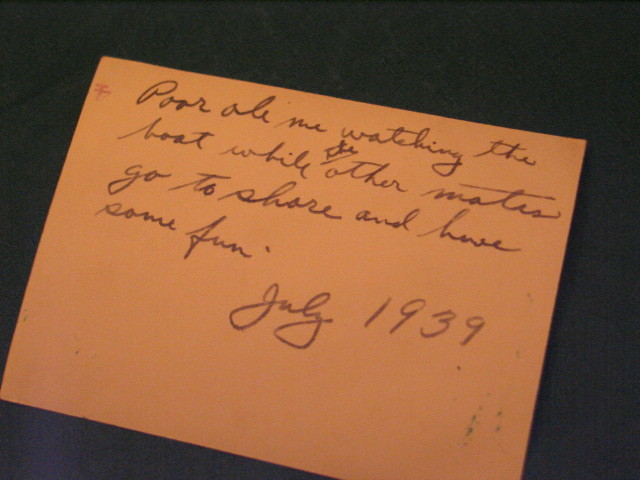 Poor ole me watching the
boat while de other mates
go to shore and have
some fun.
July 1939